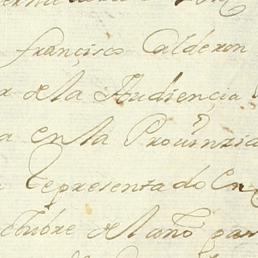 francisco Calderon
de la Audiencia
a en la Provinzia
Representado En
octubre del año pa